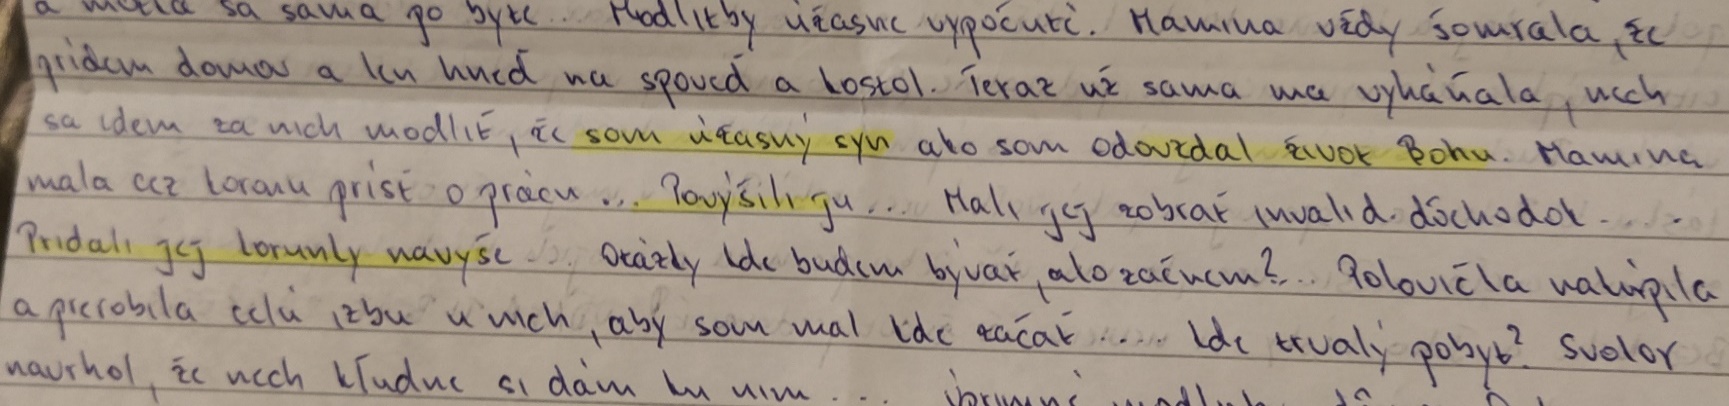 sa sama po byte... Modlitby úžasne vypočuté. Mamina vždy šomrala, že
prídem domov a len hneď na spoveď a kostol. Teraz už sama ma vyháňala, nech
sa idem za nich modliť, že som úžasný syn ako som odovzdal život Bohu. Mamina
mala cez koronu prísť o prácu... Povýšili ju... Mali jej zobrať invalid. dôchodok.....
Pridali jej korunky navyše..... Otázky kde budem bývať, ako začnem?... Polovička nakúpila
a prerobila celú izbu u nich, aby som mal kde začať.... Kde trvalý pobyt? Svokor
navrhol, že nech kľudne si dám ku nim...